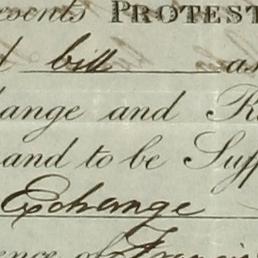 esents PROTEST
d bill as
hange and R
and to be Suff
Exchange
ence of Francis